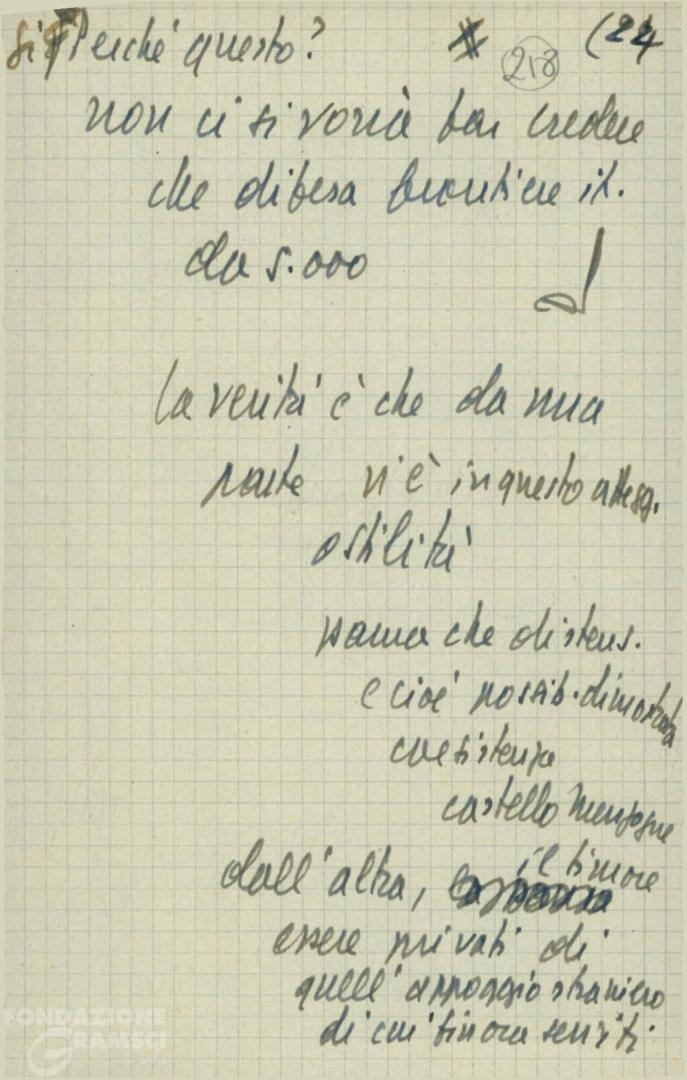 Perché questo? 218 (24
non ci si vorrà far credere
che difesa frontiere it.
da 5.000
la verità è che da una
parte vi è in questo attegg.
ostilità
paura che distens.
e cioè possib. dimostrata
coesistenza
castello menzogne
il timore
dall'altra,
essere privati di
quell'appoggio straniero
di cui finora serviti.
FONDAZIONE
GRAMSCI